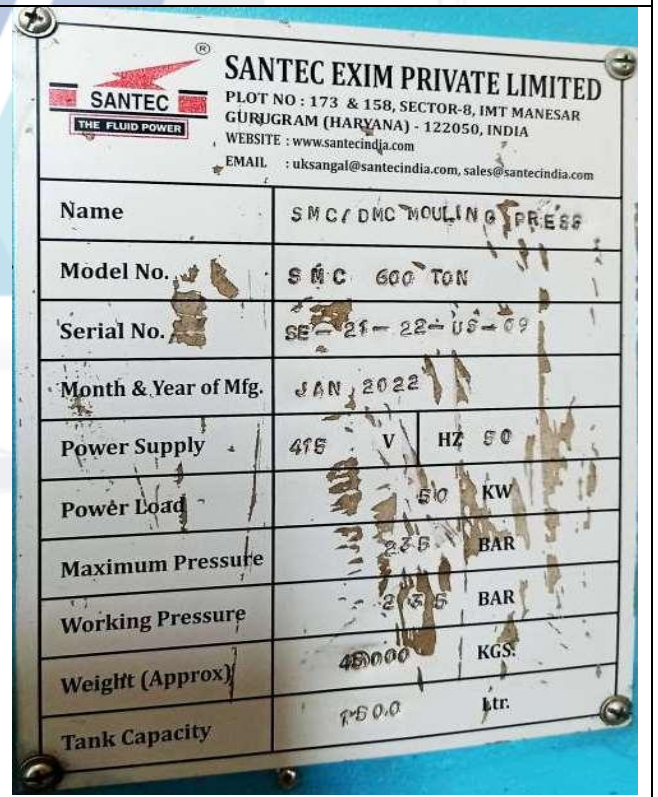 ®
SANTEC
THE FLUID POWER
SANTEC EXIM PRIVATE LIMITED
PLOT NO : 173 & 158, SECTOR-8, IMT MANESAR
GURUGRAM (HARYANA) - 122050, INDIA
WEBSITE : www.santecindia.com
EMAIL : uksangal@santecindia.com, sales@santecindia.com
Name SMC/DMC MOULING PRESS
Model No. SMC 600 TON
Serial No. SE-21-22-US-09
Month & Year of Mfg. JAN, 2022
Power Supply 415 V HZ 50
Power Load 50 KW
Maximum Pressure 235 BAR
Working Pressure 235 BAR
Weight (Approx) KGS.
Tank Capacity Ltr.